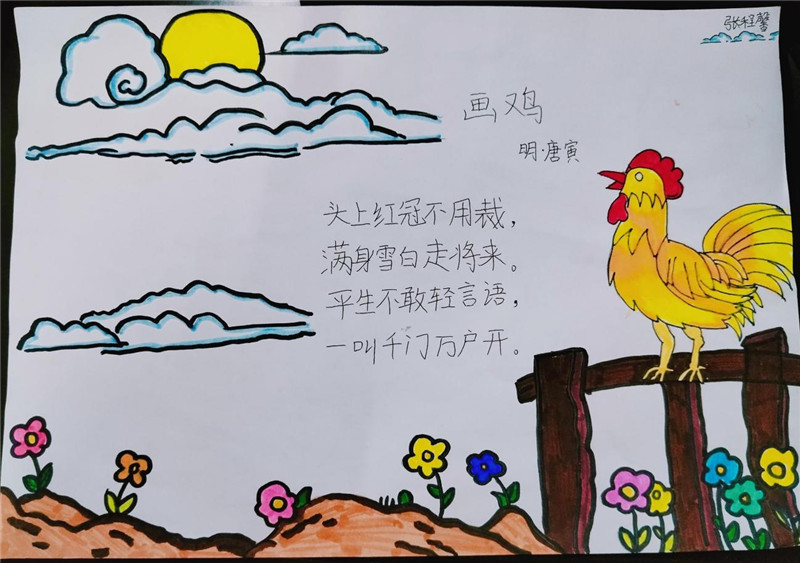 张程馨
画鸡
明·唐寅
头上红冠不用裁，
满身雪白走将来。
平生不敢轻言语，
一叫千门万户开。